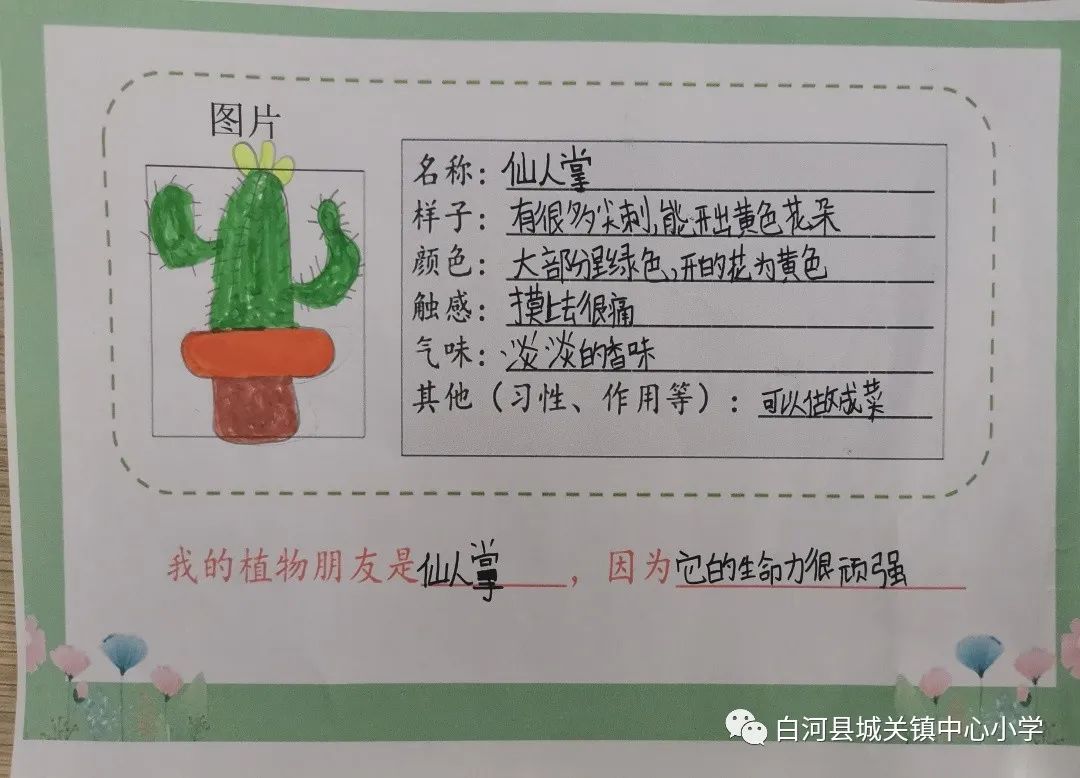 图片
名称：仙人掌
样子：有很多尖刺,能开出黄色花朵
颜色：大部分是绿色,开的花为黄色
触感：摸上去很痛
气味：淡淡的香味
其他（习性、作用等）：可以做成菜
我的植物朋友是仙人掌，因为它的生命力很顽强
白河县城关镇中心小学